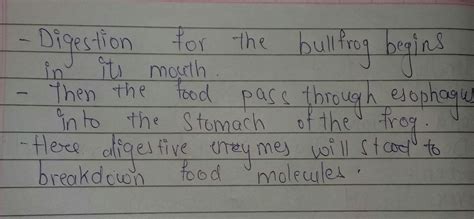 - Digestion for the bullfrog begins
in its mouth.
- Then the food pass through esophagus
into the stomach of the frog.
- Here digestive enzymes will start to
breakdown food molecules.